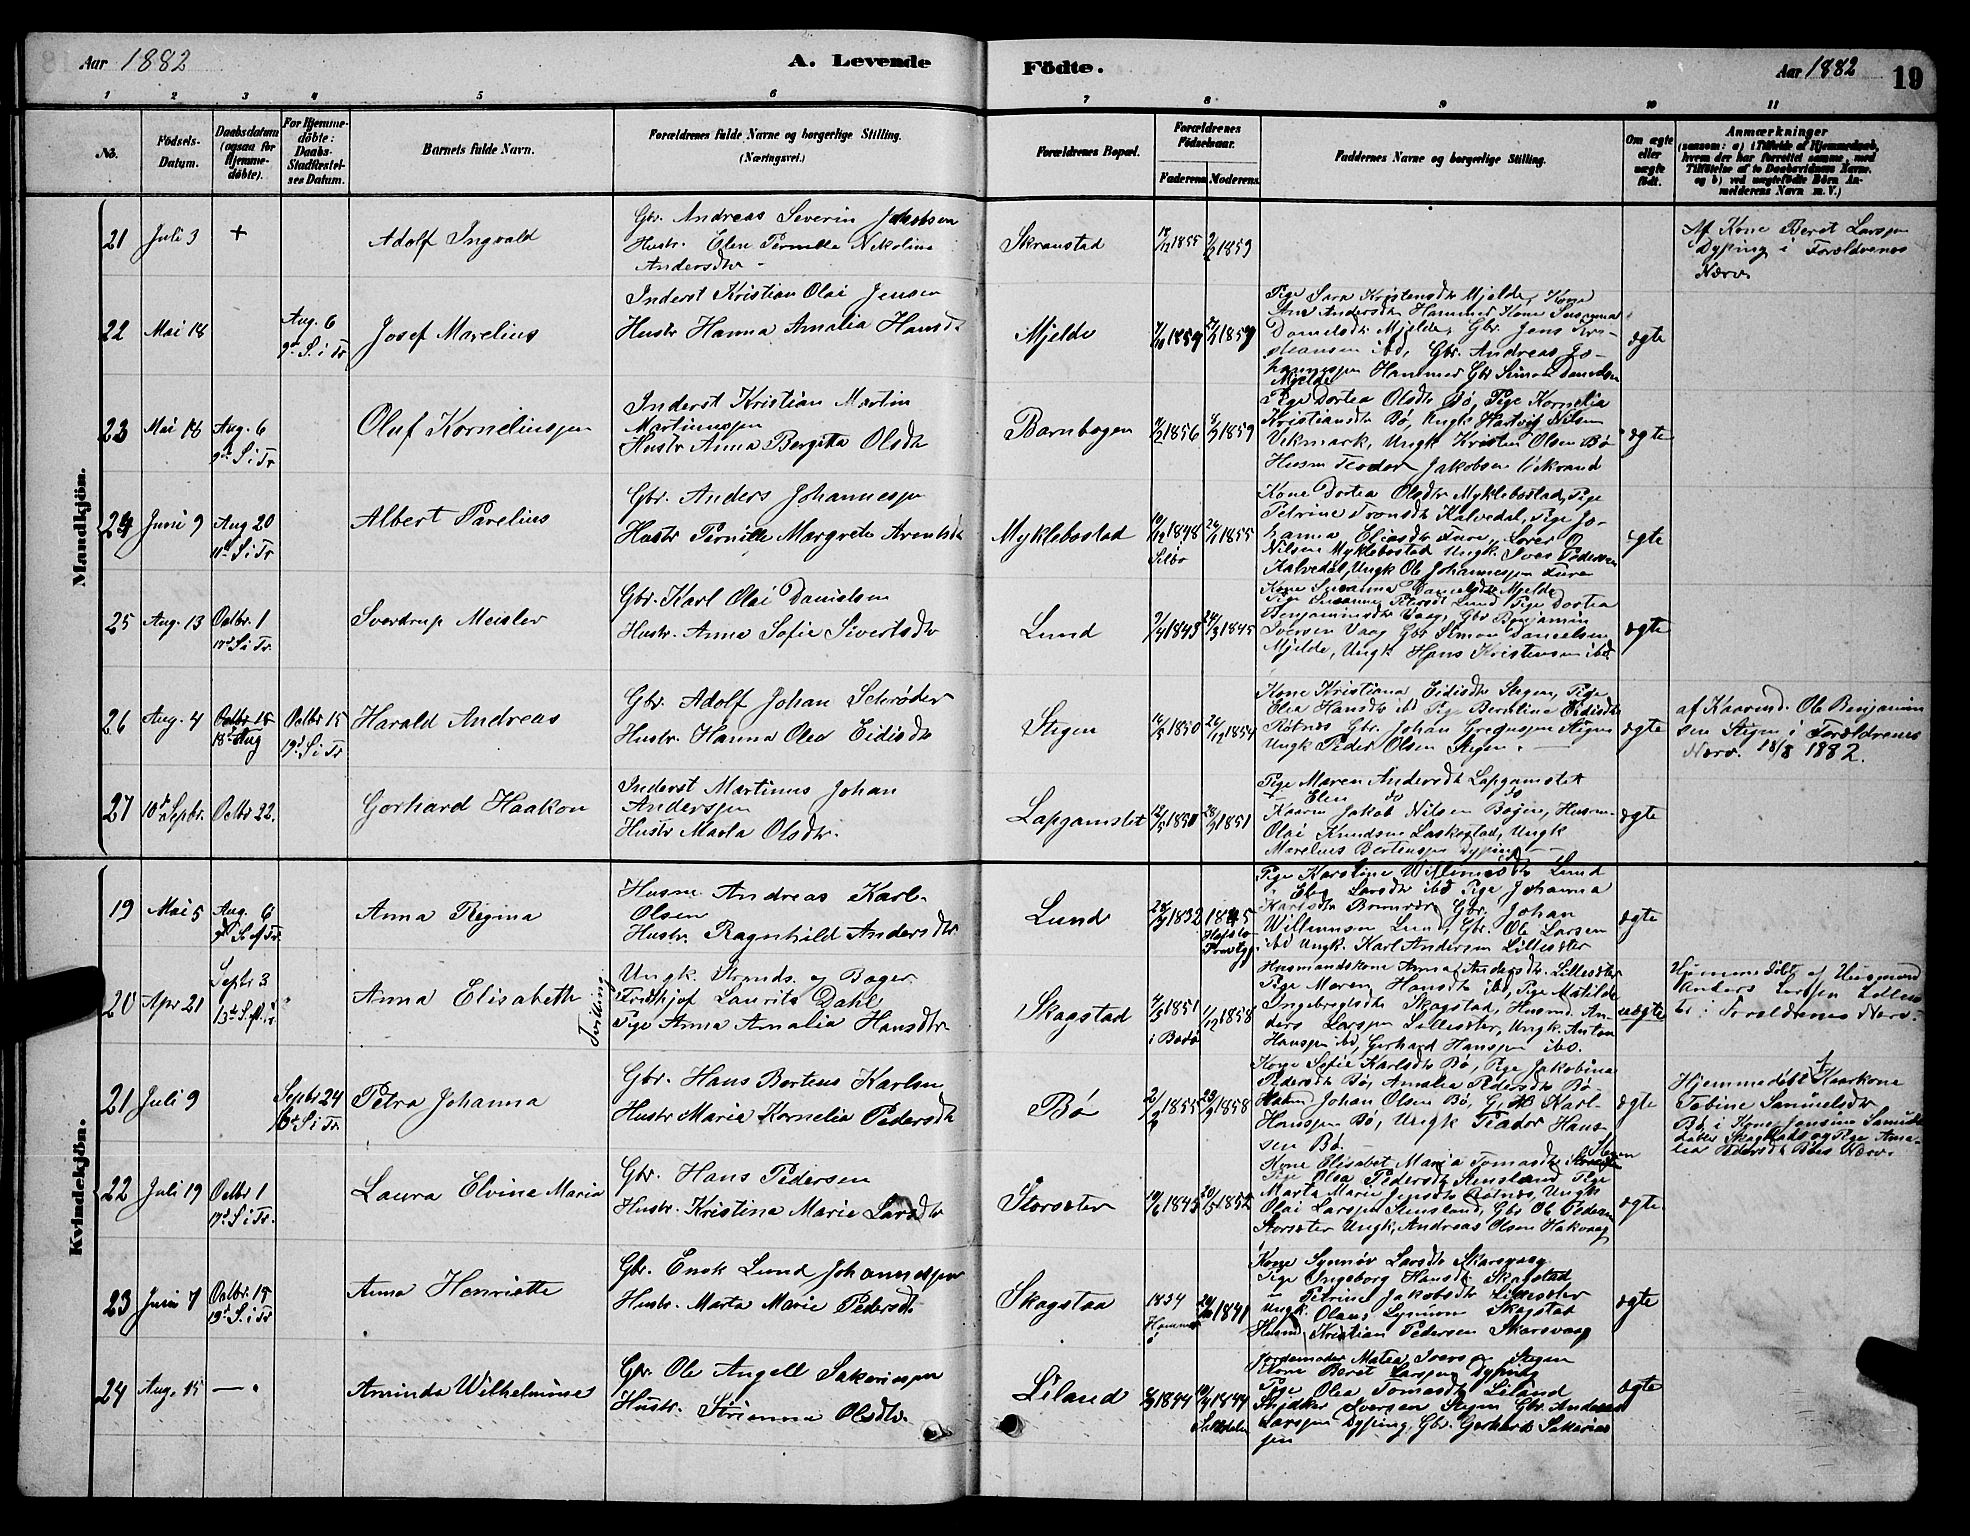 Aar 1882
A. Levende
Födte.
Aar 1882
19
1 2 3 4 5 6 7 8 9 10 11
No.
Födsels-
Datum.
Daabsdatum
(ogsaa for
Hjemme-
döbte).
For Hjemme-
döbte:
Daabs-
Stadfæstel-
ses Datum.
Barnets fulde Navn.
Forældrenes fulde Navne og borgerlige Stilling.
(Næringsvei.)
Forældrenes Bopæl.
Forældrenes
Födselsaar.
Faderens. Moderens.
Faddernes Navne og borgerlige Stilling.
Om ægte
eller
uægte
födt.
Anmærkninger
(saasom: a) i Tilfælde af Hjemmedaab,
hvem der har forrettet samme, med
Tilföielse af to Daabsvidners Navne,
og b) ved uægtefödte Börn An-
melderens Navn m. V.)
Mandkjön.
21 Juli 3 +
Adolf Ingvald
Gbr. Andreas Severin Jakobsen
Hustr. Elen Pernilla Nikoline
Andersdtr
Skranstad
1855 1859
Af Kone Beret Larsen
Dyping i Forældrenes
Nærv.
22 Mai 18
Aug. 6
9d S. i Tr
Josef Marelius
Inderst Kristian Olai Jensen
Hustr Hanna Amalia Hansdt
Mjelde
1859 1859
Pige Sara Kristensdtr Mjelde, Kone
Ane Andersdtr Hammer Kone Susanna
Danielsdtr Mjelde, Gbr. Jens Kri-
stiansen ibd, Gbr. Andreas Jo-
hannessen Hammer Gbr Simon Danielsen
Mjelde
ægte
23 Mai 18
Aug. 6
9d S i Tr
Oluf Korneliussen
Inderst Kristian Martin
Martinussen
Hustr Anna Bergitta Olsdtr
Barnbogen
1856 1859
Pige Dortea Olsdtr Bø, Pige Kornelia
Kristiansdtr Bø, Ungk Hartvig Nilsen
Vikmark, Ungk Kristen Olsen Bø
Husm Teodor Jakobsen
ægte
24 Juni 9
Aug 20
11d S i Tr
Albert Parelius
Gbr. Anders Johannessen
Hustr Pernille Margrete Arentsdt
Myklebostad
10/12 1848
1855
Kone Dortea Olsdtr Myklebostad, Pige
Petrine Tronsdtr Kalvedal, Pige Jo-
hanna Eliasdtr Fure,
Nilsen Myklebostad Ungk Iver Pedersen
Kalvedal, Ungk Ole Johannessen Fure
ægte
25 Aug. 13
Octbr. 1
17d S i Tr.
Sverdrup Meisler
Gbr. Karl Olai Danielsen
Hustr. Anna Sofie Sivertsdtr
Lund
1843 24/3 1845
Kone Susanna Danielsdtr Mjelde
Pige Susanna Petersdt Lund Pige Dortea
Benjaminsdtr Vaag, Gbr Benjamin
Iversen Vaag Gbr Simon Danielsen
Mjelde, Ungk Hans Kristensen ibd
ægte
26 Aug. 4
Octbr 15
18d Aug
Octbr 15
19d S. i Tr
Harald Andreas
Gbr. Adolf Johan Schrøder
Hustr. Hanna Olea Eidisdtr
Stegen
1850 1854
Kone Kristiana Eidisdtr Stegen, Pige
Elea Hansdtr ibd Pige Berntine Eidisdtr
Røtnes Gbr. Johan Gregusen Stegen
Ungk Peder Olsen Stegen
ægte
af Kaarmd. Ole Benjamin
sen Stegen i Forældrenes
Nærv. 18/8 1882.
27 10d Septbr. Octbr 22.
Gerhard Haakon
Inderst Martinus Johan
Anderssen
Hustr Marta Olsdtr.
Lapgamstet
1851
Pige Maren Andersdtr Lapgamstet
" Elen do do
Kaarm Jakob Nilsen Bogen, Husm.
Olai Knudsen Laskestad, Ungk
Marelius Bertenssen Dyping
ægte
Kvindekjön.
19 Mai 5
Aug. 6
9d S. ef Tr.
Anna Regina
Husm. Andreas Karl
Olsen
Hustr. Ragnhild Andersdtr
Lund
1832 1845
Pige Karoline Willumsdtr Lund
" Elen Larsdtr ibd Pige Johanna
Karlsdtr Gbr. Johan
Willumsen Lund, Gbr. Ole Larsen
ibd Ungk. Karl Andersen Lillesæter
ægte
20 Apr 21
Septbr 3
13d S.
Anna Elisabeth
Tvilling
Ungk. Strands. og Bager
Fridtjof Laurits Dahl
Pige Anna Amalia Hansdtr
Skagstad
1851
i Bodø
1858
Husmandskone Anna Andersdtr. Lillesæter
Pige Maren Hansdtr ibd, Pige Matilde
Ingebregtsdtr Skagstad, Husmd. An-
ders Larssen Lillesæter, Ungk. Anton
Hanssen ibd, Gerhard Hanssen ibd.
uægte
Hjemmedøbt af Husmand
Anders Larssen Lilles
i Forældrenes Nærv.
21 Juli 9
Septbr 24
16d S i Tr.
Petra Johanna
Gbr. Hans Berteus Karlsen
Hustr Marie Kornelia Pedersdt
Bø
1855 1858
Kone Sofie Karlsdtr Bø, Pige Jakobina
Pedersdtr Bø, Amalia Pedersdtr Bø
Johan Olsen Bø, Karl
Hanssen Bø, Ungk Teodor Hans-
sen Bø
ægte
Hjemmedøbt af Kaarkone
Tobine Samuelsdtr
Bø i Kone Jensine Samuels
og Pige Ama-
lia Pedersdt Bøs Nærv.
22 Juli 19
Octbr 1
17d S i Tr.
Laura Elvina Maria
Gbr. Hans Pedersen
Hustr. Kristina Marie Larsdtr
Storsæter
1843 1852
Kone Elisabet Maria Tomasdtr Stegen
Pige Olea Pedersdtr Pige
Marta Marie Jensdtr Røtnes, Ungk
Olai Larssen Gbr Ole Pedersen
Storsæter Ungk, Andreas Olsen Hakvaag
ægte
23 Juni 7
Octbr 15
19d S. i Tr
Anna Henriette
Gbr. Enok Lund Johannessen
Hustr. Marta Marie Pedersdt
Skagstad
1834
Hammer
ø
1841
Kone Synnøv Larsdtr Skarsvaag
Pige Ingeborg Hansdt Skagstad
" Petrine Jakobsdtr Lillesæter
Ungk. Olaus Skagstad
Husmd Kristian Pedersen Skarsvaag
ægte
24 Aug. 15 — "
Aminda Wilhelmine
Gbr Ole Angell Sakariassen
Hustr. Olsdtr.
Liland
1844 1844
Saltdalen
Jordemoder Matea Stegen
Kone Beret Larssen Dyping
Pige Olea Tomasdtr Liland
Iversen Stegen Gbr. Andreas
Larssen Dyping, Gbr. Gerhard Sakarias
sen
ægte